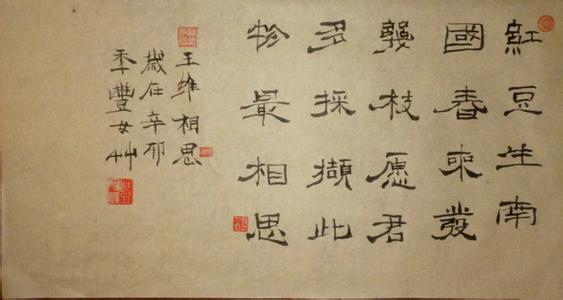 紅豆生南
國春來發
幾枝愿君
多採擷此
物最相思
王维相思
歲在辛卯
季豐女艸